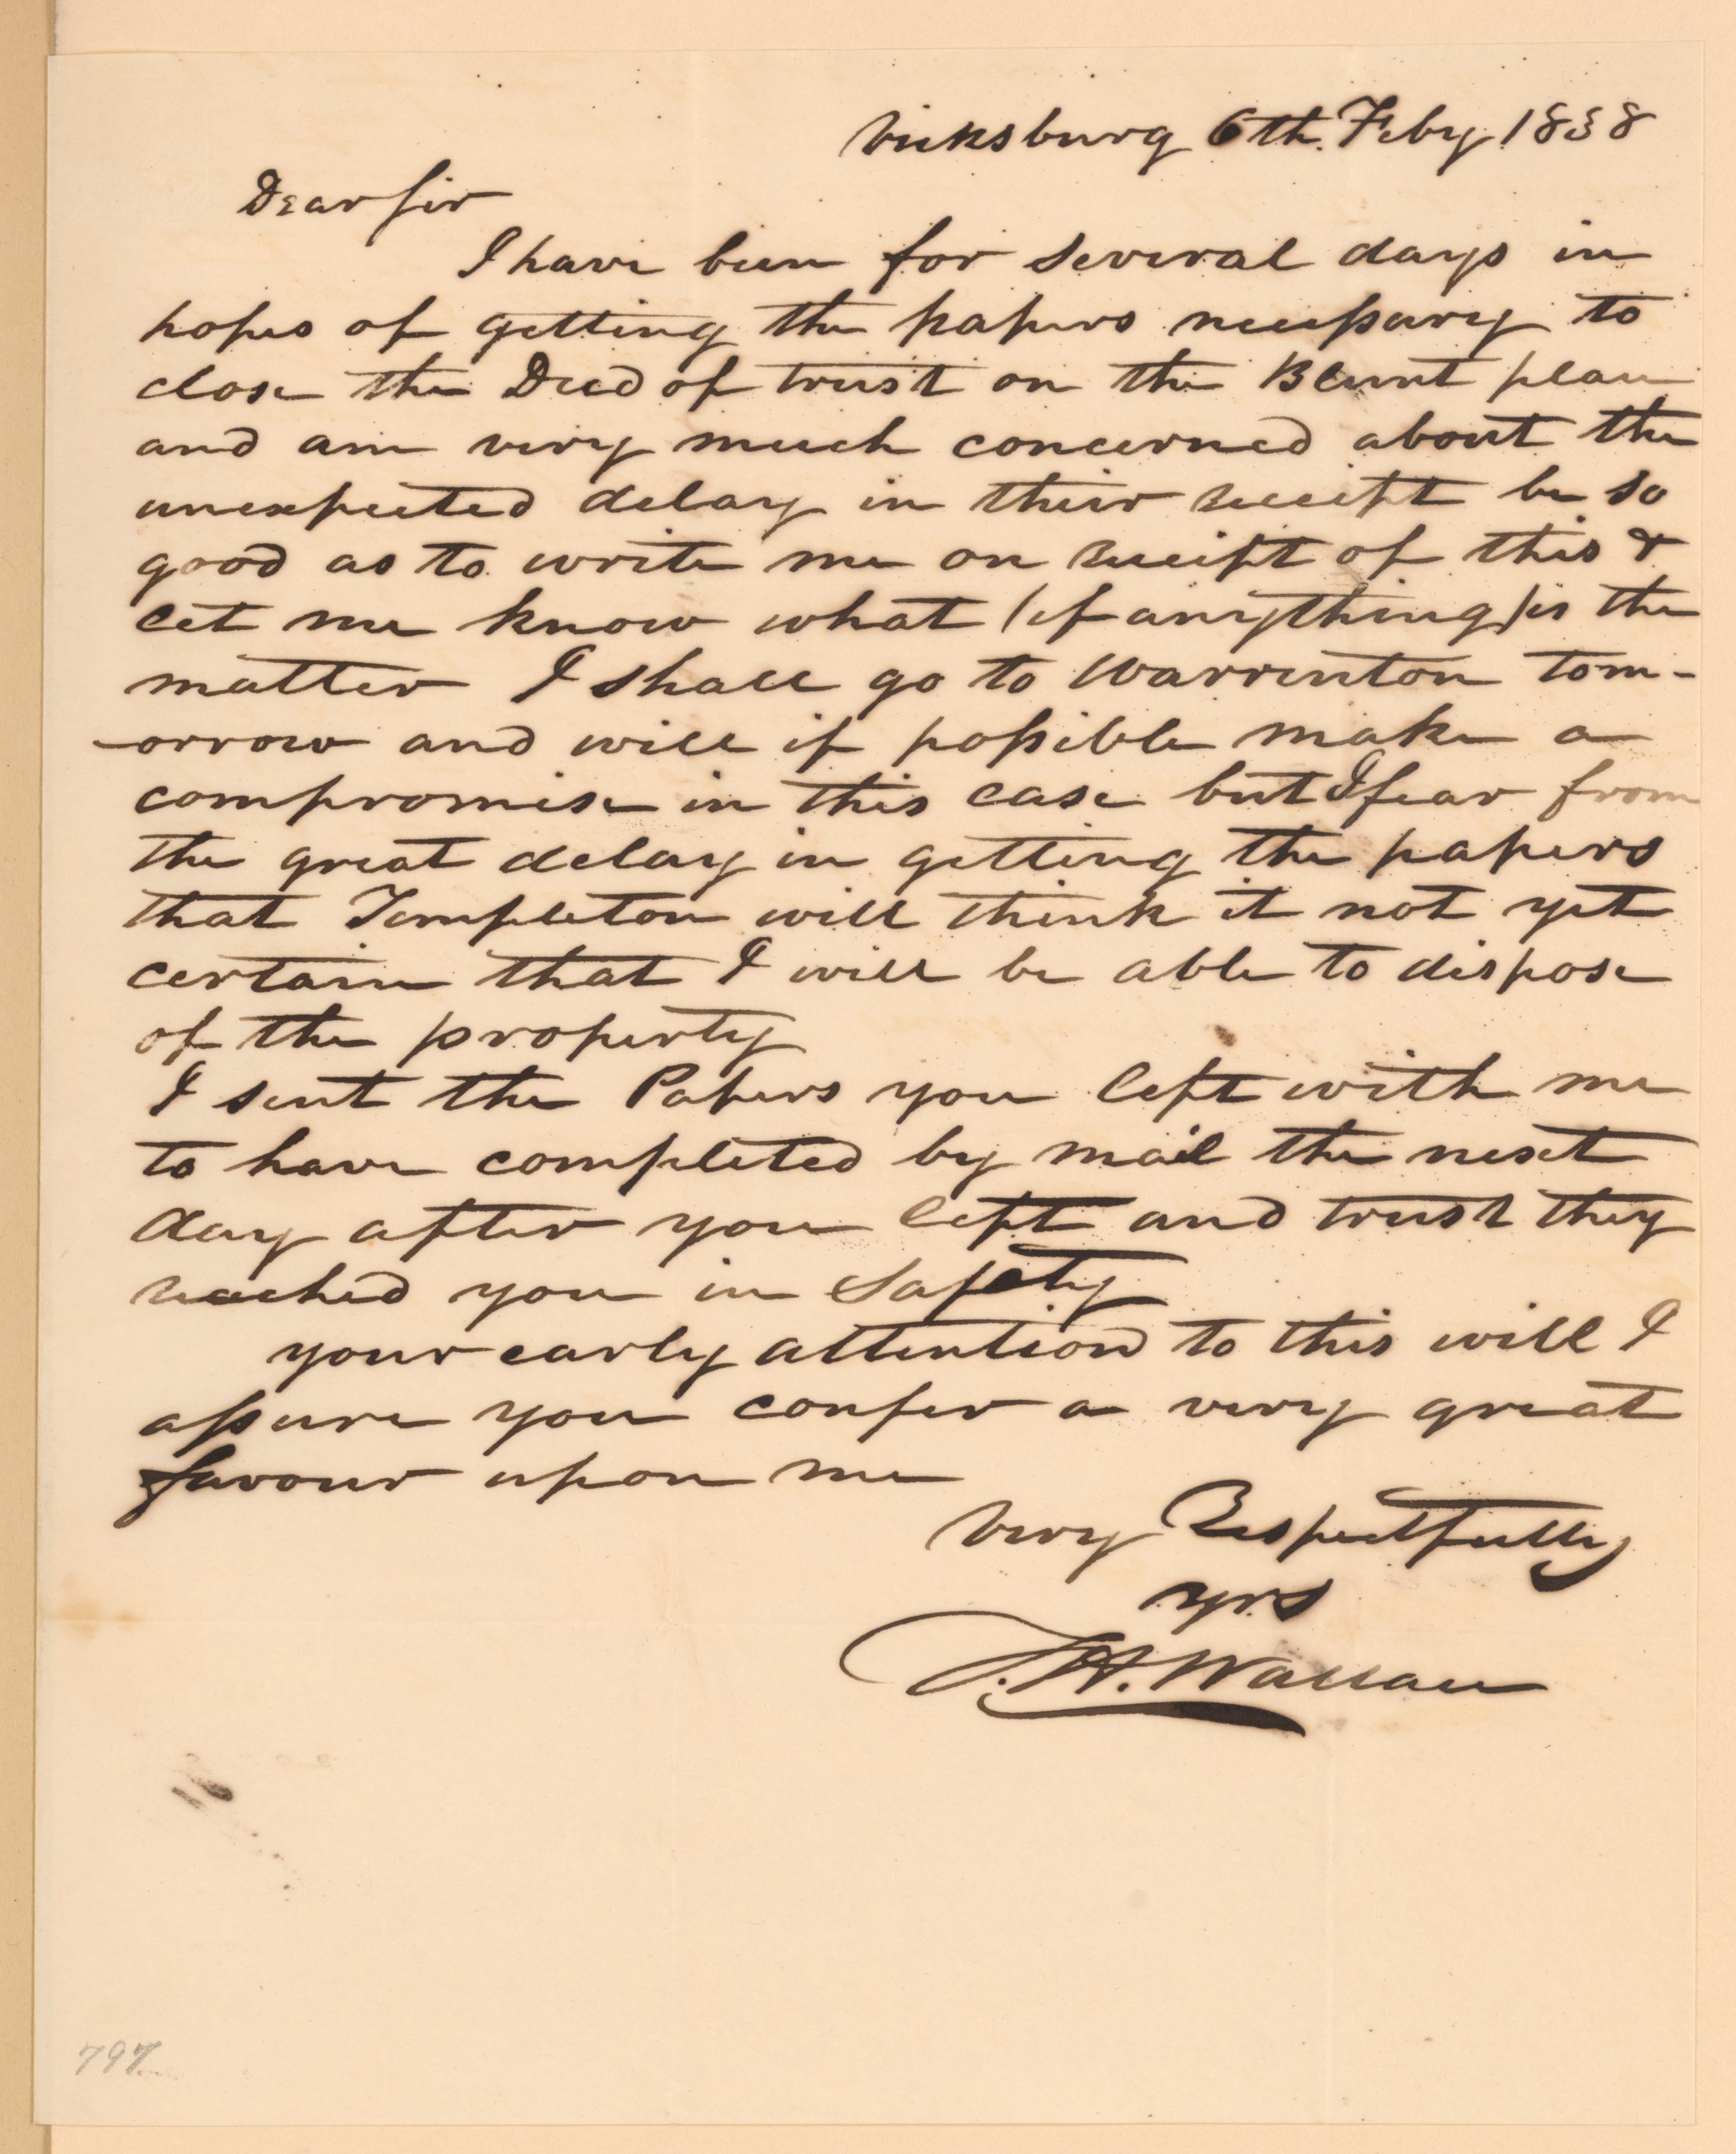 Vicksburg 6th. Feby 1838
Dear Sir
I have been for several days in
hopes of getting the papers necessary to
close the Deed of trust on the Blunt place
and am very much concerned about the
unexpected delay in their receipt be so
good as to write me on receipt of this &
let me know what (if anything) is the
matter I shall go to Warrenton tom-
-orrow and will if possible make a
compromise in this case but I fear from
the great delay in getting the papers
that Templeton will think it not yet
certain that I will be able to dispose
of the property
I sent the Papers you left with me
to have completed by mail the next
day after you left and trust they
reached you in Safety
your early attention to this will I
assure you confer a very great
favour upon me
Very Respectfully
yrs
W. Wallace
797